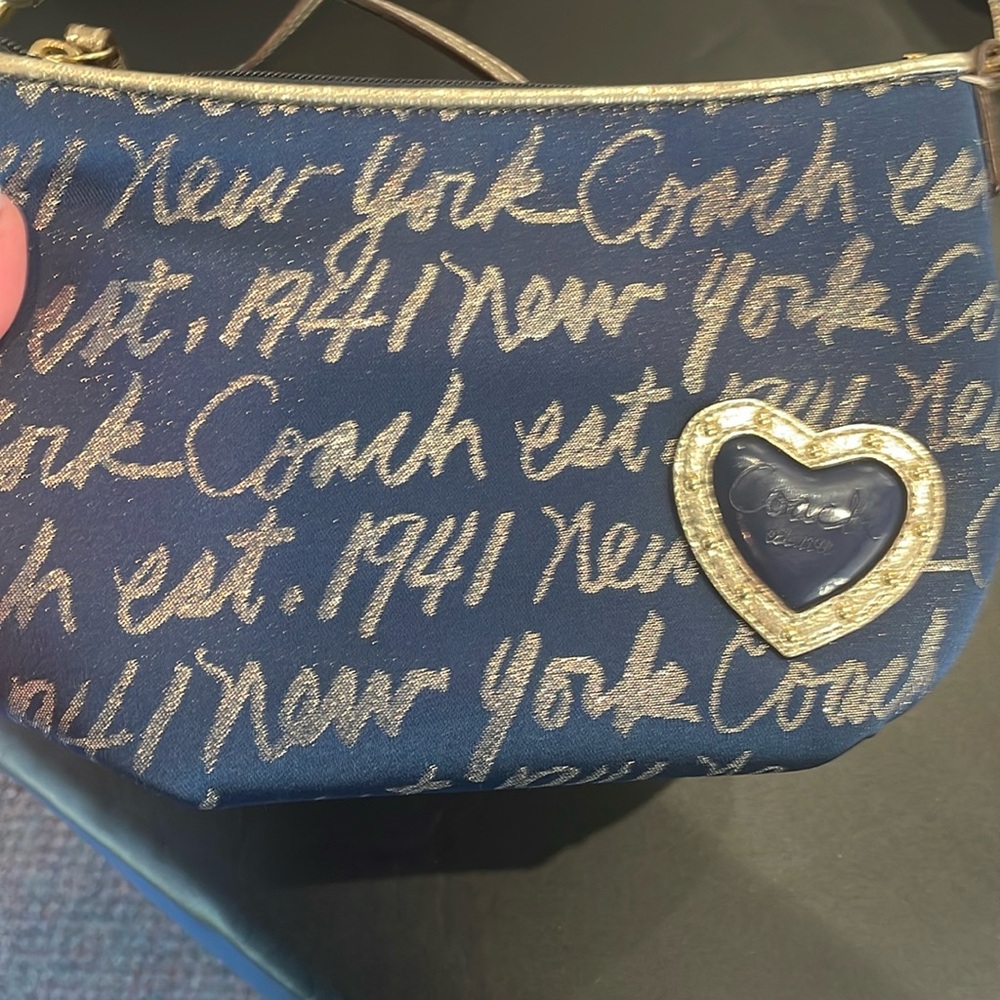 41 New York Coach es
est. 1941 New York Co
ork Coach est. 1941 New
h est. 1941 New
Coach
est. 1941
1941 New York Coach